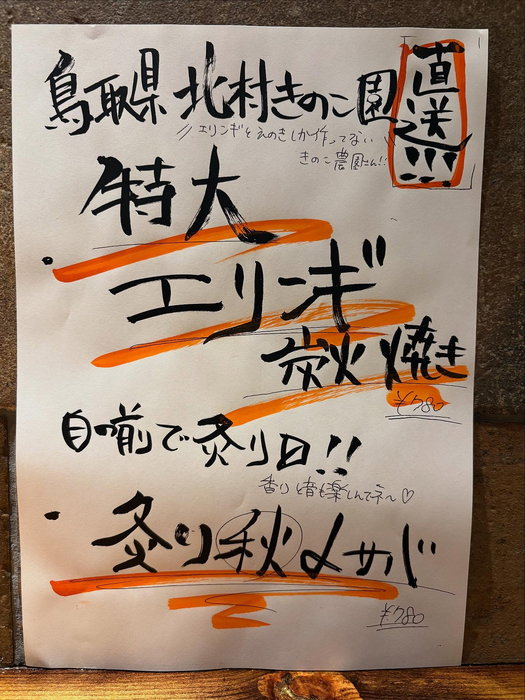 鳥取県 北村きのこ園 直送!!!
エリンギとえのきしか作ってない
きのこ農園さん!!
特大
エリンギ
炭火焼き
¥780
目前で炙り口!!
香り 音も楽しんでネ〜♡
炙り 秋〆サバ
¥780